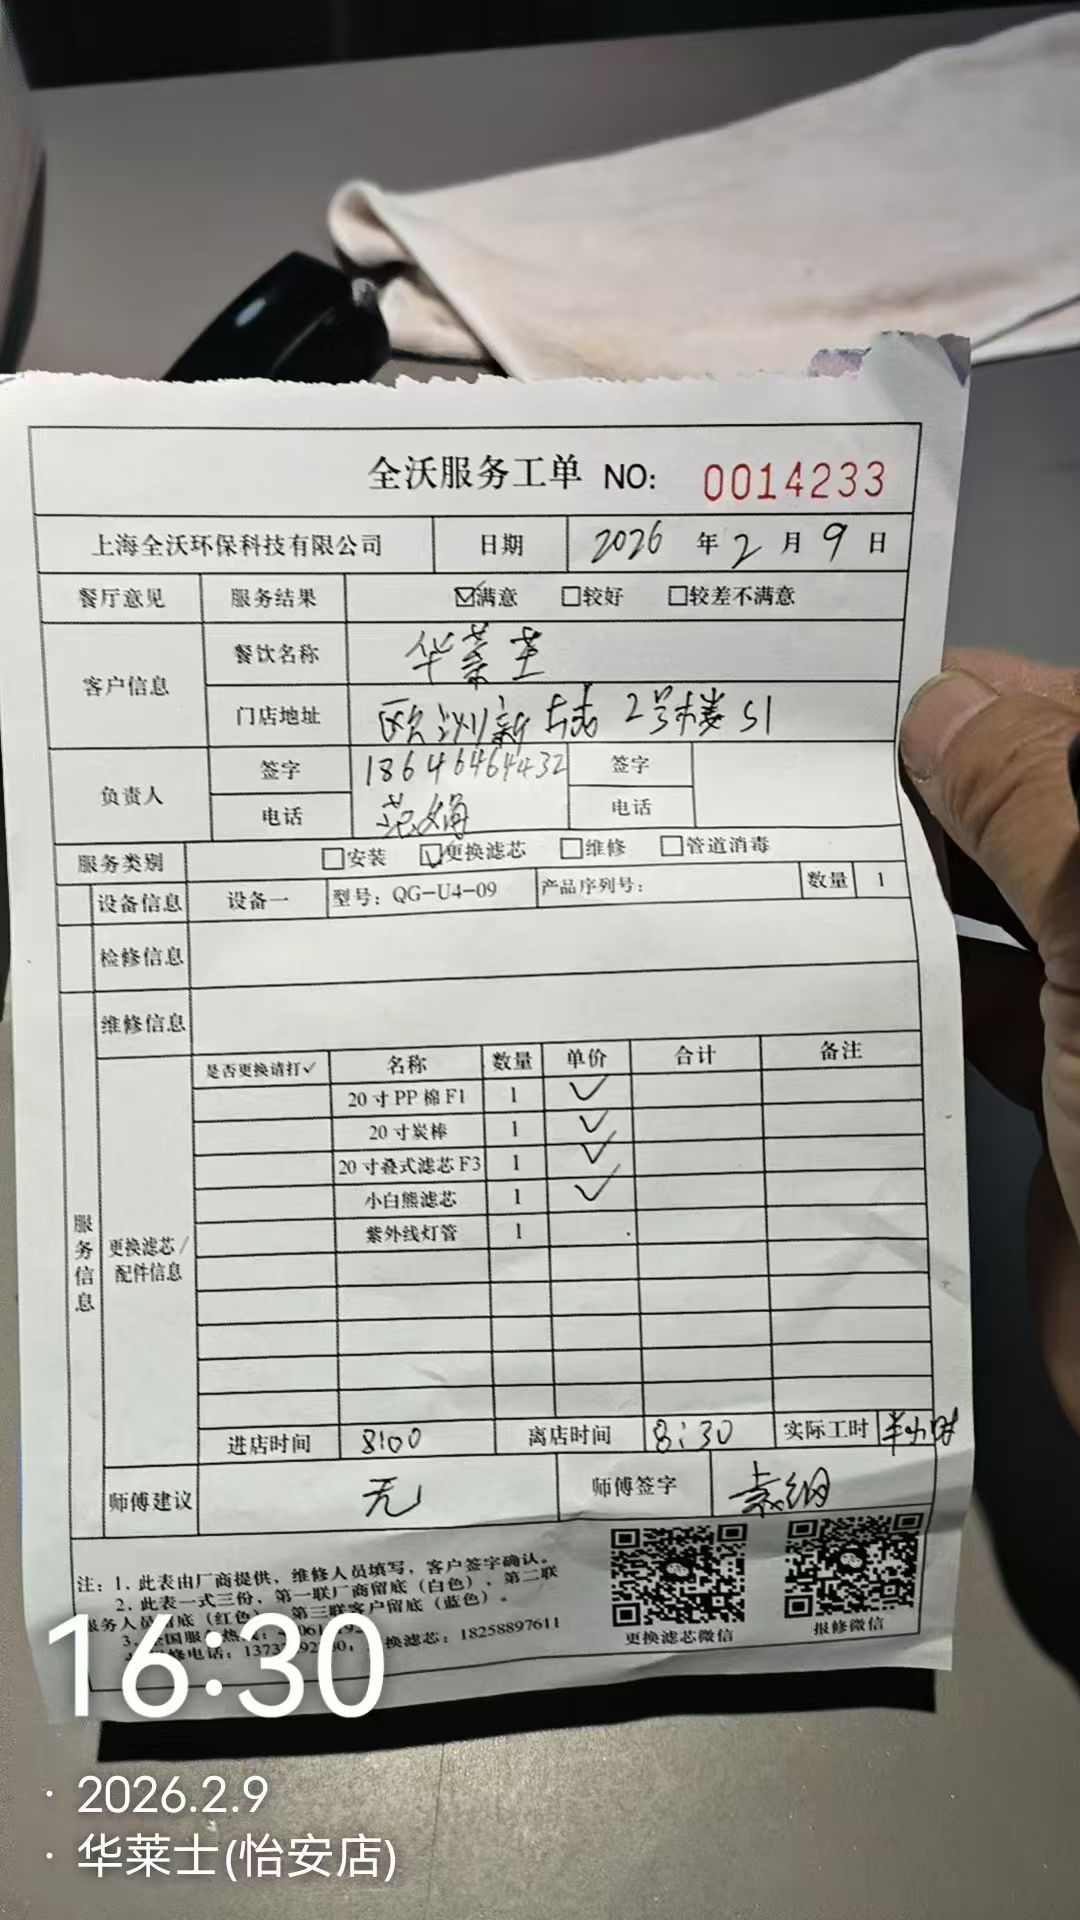 全沃服务工单 NO: 0014233
上海全沃环保科技有限公司 日期 2026 年 2 月 9 日
餐厅意见 服务结果 ☑满意 ☐较好 ☐较差不满意
客户信息 餐饮名称 华莱士
门店地址 欧洲新城 2号楼 S1
负责人 签字 18646464432 签字
电话 范娟 电话
服务类别 ☐安装 ☑更换滤芯 ☐维修 ☐管道消毒
设备信息 设备一 型号：QG-U4-09 产品序列号： 数量 1
检修信息
维修信息
服务信息
更换滤芯/配件信息
是否更换请打✓ 名称 数量 单价 合计 备注
20寸PP棉F1 1 ✓
20寸炭棒 1 ✓
20寸叠式滤芯F3 1 ✓
小白熊滤芯 1 ✓
紫外线灯管 1
进店时间 8:00 离店时间 8:30 实际工时 半小时
师傅建议 无 师傅签字
注：1. 此表由厂商提供，维修人员填写，客户签字确认。
2. 此表一式三份，第一联厂商留底（白色），第二联
服务人员留底（红色），第三联客户留底（蓝色）。
换滤芯：18258897611
更换滤芯微信 报修微信
16:30
· 2026.2.9
· 华莱士(怡安店)